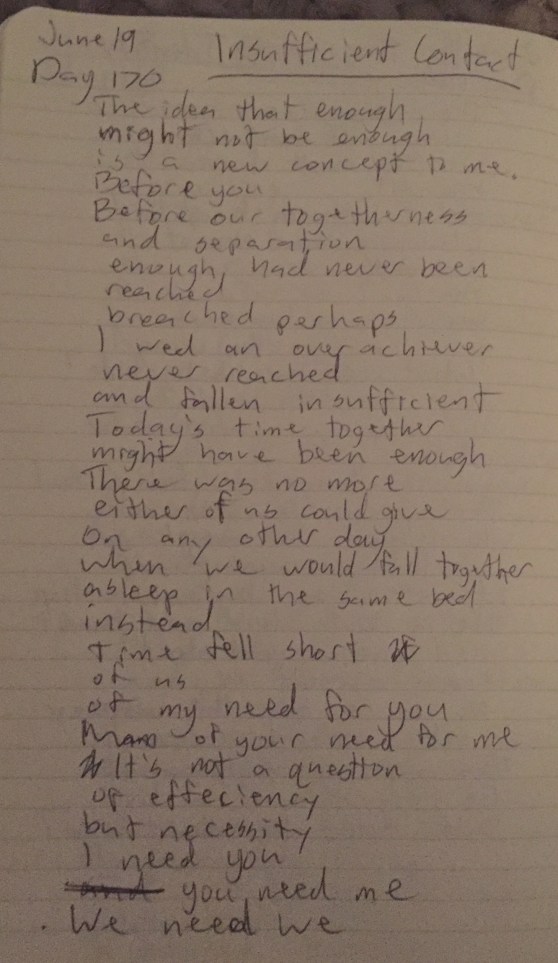 June 19
Insufficient Contact
Day 170
The idea that enough
might not be enough
is a new concept to me.
Before you
Before our togetherness
and separation
enough, had never been
reached
breached perhaps
I wed an over achiever
never reached
and fallen insufficient
Today's time together
might have been enough
There was no more
either of us could give
On any other day
when we would fall together
asleep in the same bed
instead
time fell short
of us
of my need for you
of your need for me
It's not a question
of effeciency
but necessity
I need you
and you need me
We need we